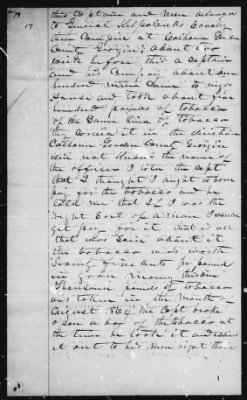 this Captain and men belonged
to General McCooks Cavalry
then Camped at Calhoun Gordon
County Georgia about two
weeks before this a Captain
and his Company about one
hundred men Came to my
House and took about five
hundred pounds of tobacco
of the same kind of tobacco
they carried it in the direction
Calhoun Gordon County Georgia
did not know the name of
the officer I told the Capt
that I thought I ought to have
pay for the tobacco and he
told me that if I was the
right Sort of a man I would
get pay for it that is all
that was said about it
the tobacco was worth
Seventy five cents per pound
in green money this
Thousand pounds of tobacco
was taken in the month of
August 1864 the Capt broke
open a box of the tobacco at
the time he took it and
it out to his men right there